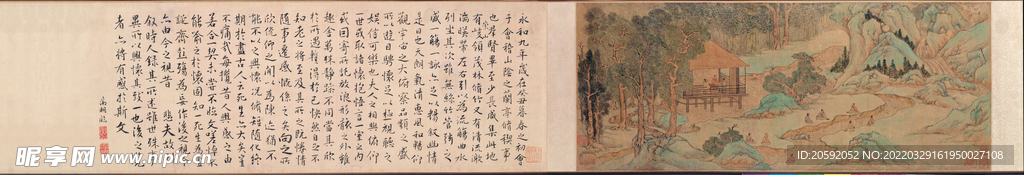 永和九年歲在癸丑暮春之初會
于會稽山陰之蘭亭脩禊事
也群賢畢至少長咸集此地
有峻領茂林脩竹又有清流激
湍暎帶左右引以為流觴曲水
列坐其次雖無絲竹管弦之
盛一觴一詠亦足以暢敘幽情
是日也天朗氣清惠風和暢仰
觀宇宙之大俯察品類之盛
所以遊目騁懷足以極視聽之
娛信可樂也夫人之相與俯仰
一世或取諸懷抱悟言一室之內
或因寄所託放浪形骸之外雖
趣舍萬殊靜躁不同當其欣
於所遇暫得於己快然自足不
知老之將至及其所之既惓情
隨事遷感慨係之矣向之所
欣俛仰之間以為陳迹猶不
能不以之興懷況脩短隨化終
期於盡古人云死生亦大矣豈
不痛哉每攬昔人興感之由
若合一契未嘗不臨文嗟悼不
能喻之於懷固知一死生為虛
誕齊彭殤為妄作後之視今
亦由今之視昔悲夫故列
敘時人錄其所述雖世殊事
異所以興懷其致一也後之攬
者亦將有感於斯文
昵享网 www.nipic.cn
ID:20592052 NO:20220329161950027108